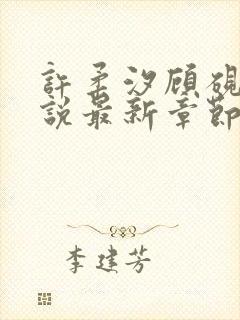 許柔汐顧硯
說最新章節
李建芳